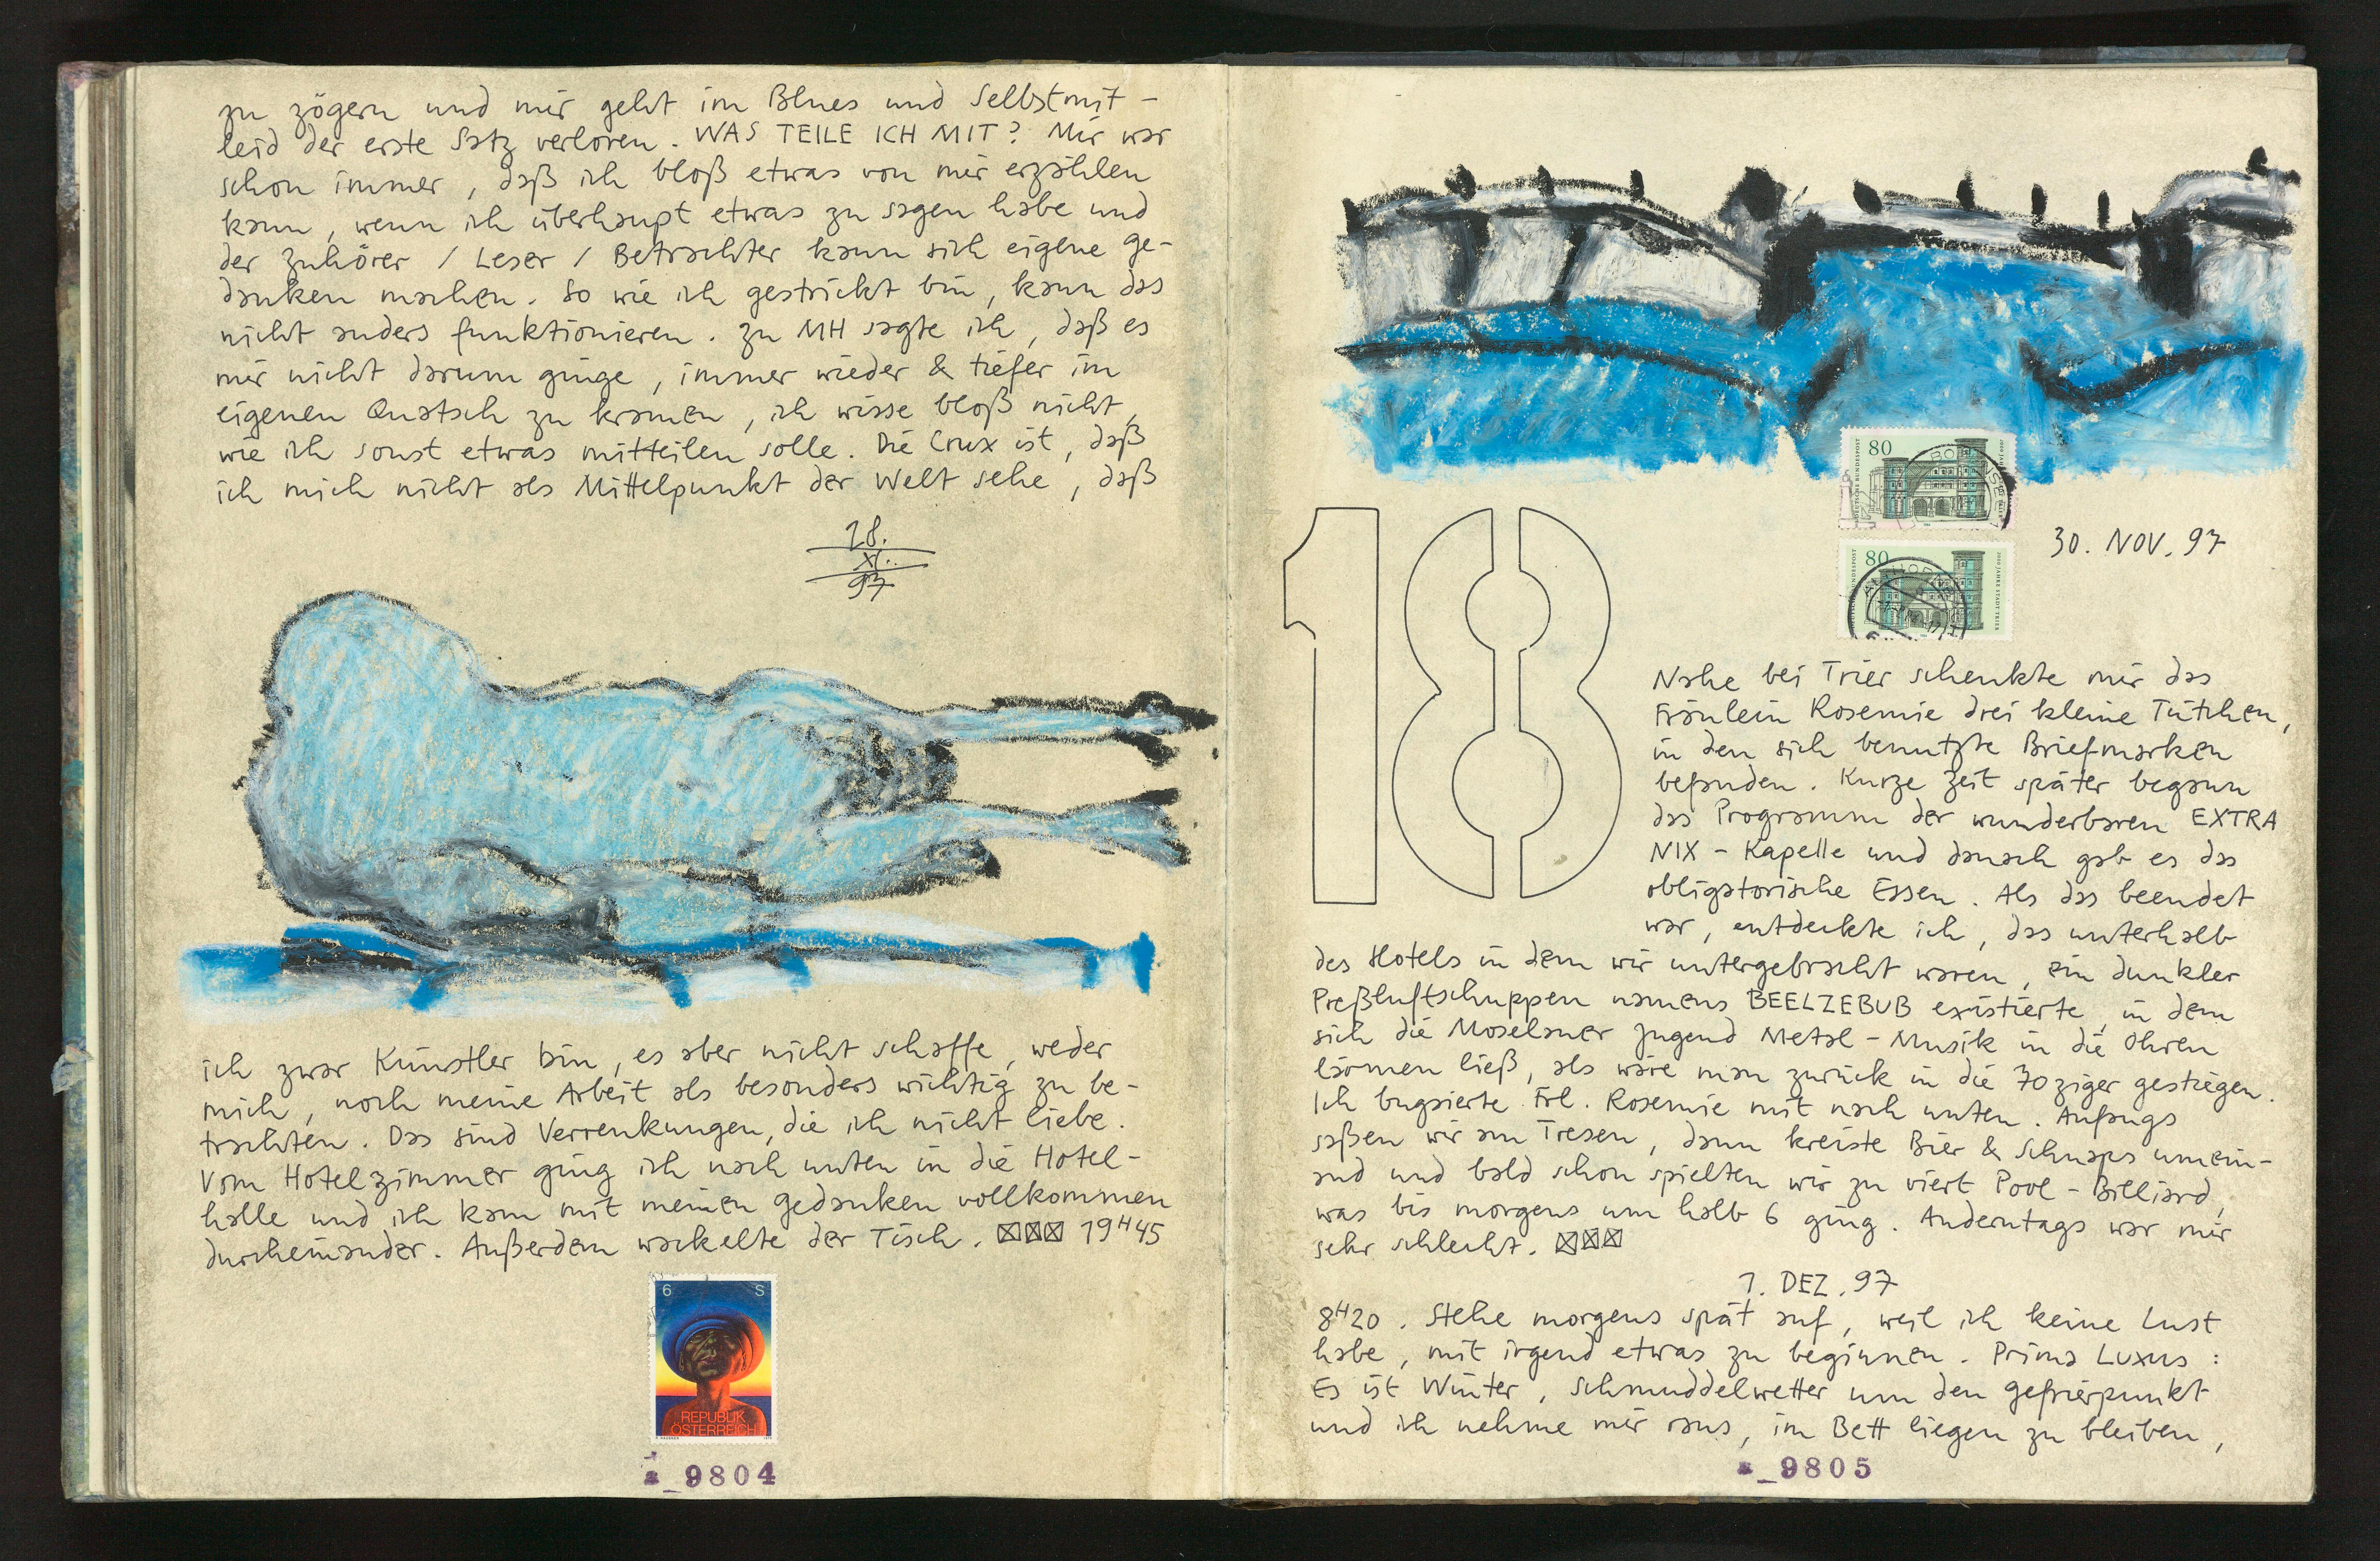 zu zögern und mir geht im Blues und Selbstmit-
leid der erste Satz verloren. WAS TEILE ICH MIT? Mir war
schon immer, daß ich bloß etwas von mir erzählen
kann, wenn ich überhaupt etwas zu sagen habe und
der Zuhörer / Leser / Betrachter kann sich eigene Ge-
danken machen. So wie ich gestrickt bin, kann das
nicht anders funktionieren. Zu MH sagte ich, daß es
mir nicht darum ginge, immer wieder & tiefer im
eigenen Quatsch zu kramen, ich wisse bloß nicht,
wie ich sonst etwas mitteilen solle. Die Crux ist, daß
ich mich nicht als Mittelpunkt der Welt sehe, daß
28.
XI.
97
ich zwar Künstler bin, es aber nicht schaffe, weder
mich, noch meine Arbeit als besonders wichtig zu be-
trachten. Das sind Verrenkungen, die ich nicht liebe.
Vom Hotelzimmer ging ich nach unten in die Hotel-
halle und ich kam mit meinen Gedanken vollkommen
durcheinander. Außerdem wackelte der Tisch. 19H45
6 S
REPUBLIK
ÖSTERREICH
a_9804
80
DEUTSCHE BUNDESPOST
2000 JAHRE STADT TRIER
30. NOV. 97
80
DEUTSCHE BUNDESPOST
2000 JAHRE STADT TRIER
18
Nahe bei Trier schenkte mir das
Fräulein Rosemie drei kleine Tütchen,
in den sich benutzte Briefmarken
befanden. Kurze Zeit später begann
das Programm der wunderbaren EXTRA
NIX - Kapelle und danach gab es das
obligatorische Essen. Als das beendet
war, entdeckte ich, das unterhalb
des Hotels in dem wir untergebracht waren, ein dunkler
Preßluftschuppen namens BEELZEBUB existierte, in dem
sich die Moselaner Jugend Metal - Musik in die Ohren
lärmen ließ, als wäre man zurück in die 70ziger gestiegen.
Ich bugsierte Frl. Rosemie mit nach unten. Anfangs
saßen wir am Tresen, dann kreiste Bier & Schnaps umein-
and und bald schon spielten wir zu viert Pool - Billiard,
was bis morgens um halb 6 ging. Anderntags war mir
sehr schlecht.
1. DEZ. 97
8H20. Stehe morgens spät auf, weil ich keine Lust
habe, mit irgend etwas zu beginnen. Prima Luxus:
Es ist Winter, Schmuddelwetter um den Gefrierpunkt
und ich nehme mir raus, im Bett liegen zu bleiben,
a_9805